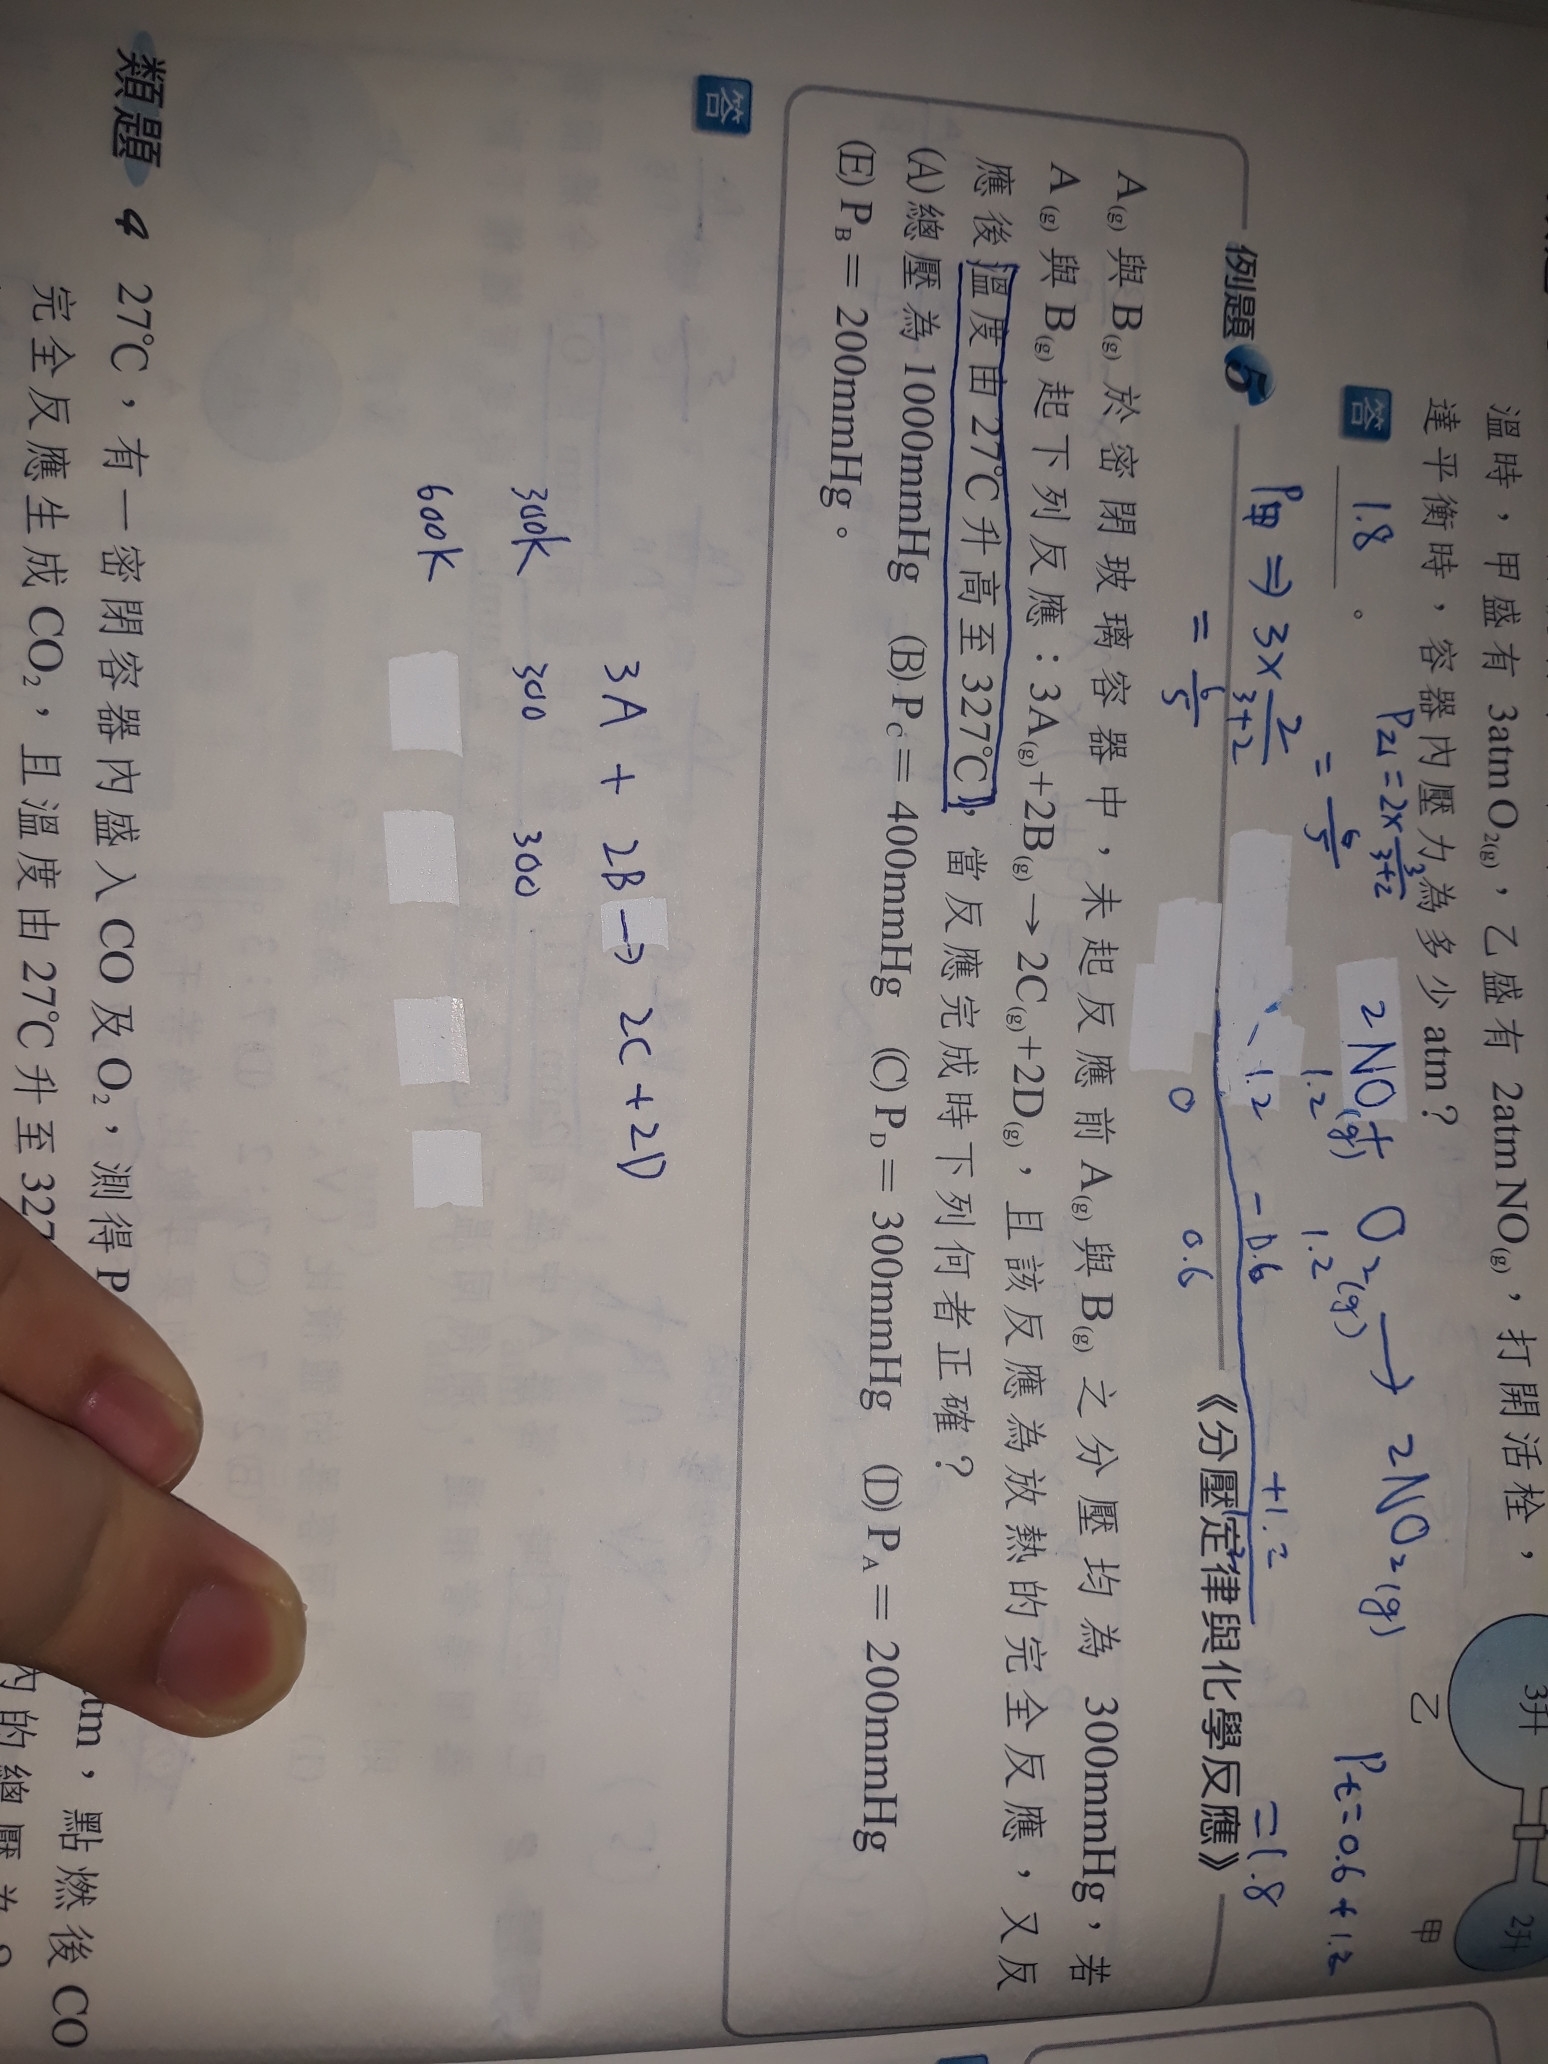 溫時，甲盛有 3atm O₂(g)，乙盛有 2atm NO(g)，打開活栓，
達平衡時，容器內壓力為多少 atm？
3升
2升
乙
甲
答 1.8 。
P乙=2×3/3+2
=6/5
2NO(g) + O₂(g) → 2NO₂(g)
1.2 1.2
-1.2 -0.6 +1.2
0 0.6
Pt=0.6+1.2
=1.8
P甲 ⇒ 3×2/3+2
=6/5
例題 5
《分壓定律與化學反應》
A(g) 與 B(g) 於密閉玻璃容器中，未起反應前 A(g) 與 B(g) 之分壓均為 300mmHg，若
A(g) 與 B(g) 起下列反應：3A(g)+2B(g)→2C(g)+2D(g)，且該反應為放熱的完全反應，又反
應後溫度由 27℃升高至 327℃，當反應完成時下列何者正確？
(A)總壓為 1000mmHg (B) P_C＝400mmHg (C) P_D＝300mmHg (D) P_A＝200mmHg
(E) P_B＝200mmHg。
答
3A + 2B → 2C + 2D
300K 300 300
600K
類題 4 27℃，有一密閉容器內盛入 CO 及 O₂，測得 P
tm，點燃後 CO
完全反應生成 CO₂，且溫度由 27℃升至 327
內的總壓為？